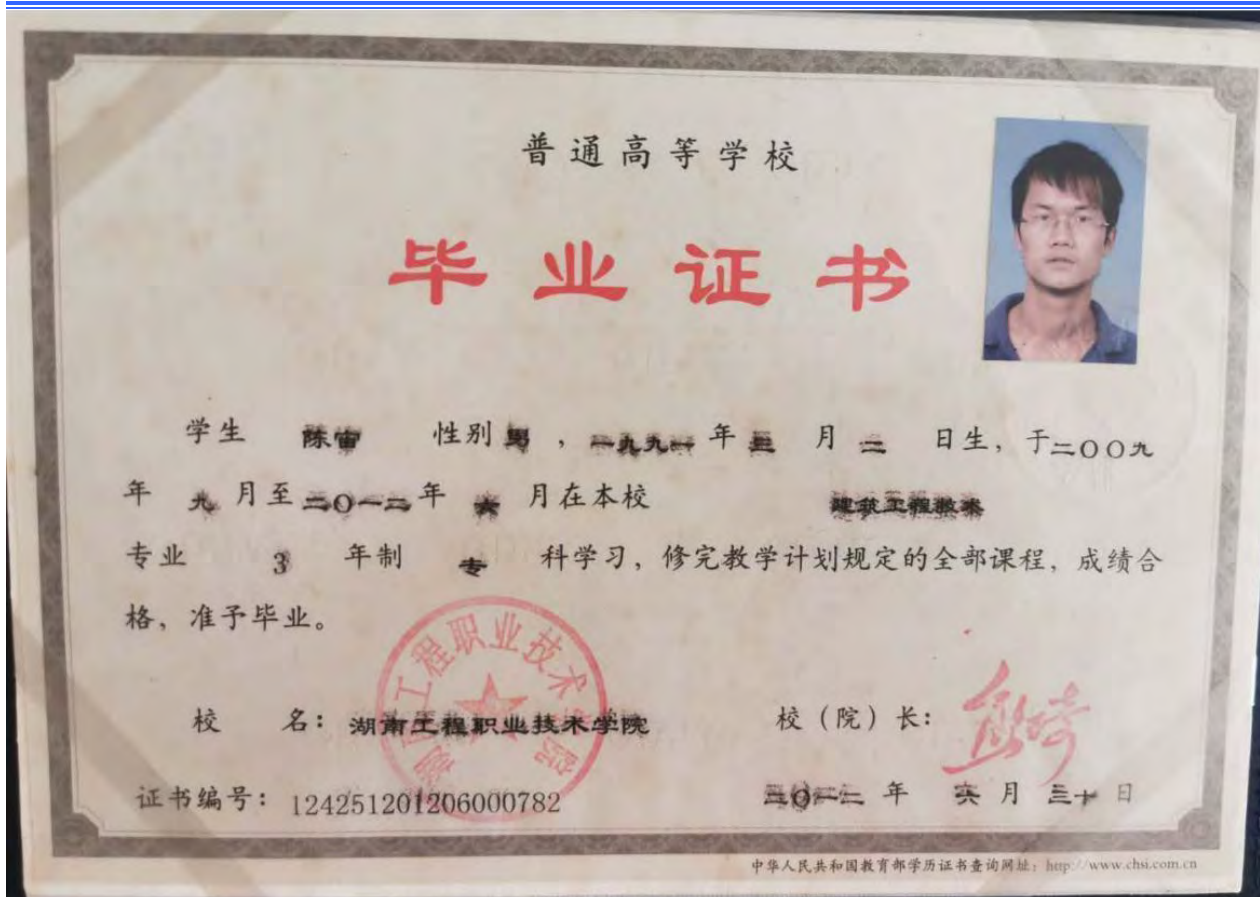 普通高等学校
毕业证书
学生 陈雷 性别 男 , 一九九一 年 三 月 二 日生, 于二〇〇九
年 九 月至 二〇一二 年 六 月在本校 建筑工程技术
专业 3 年制 专 科学习, 修完教学计划规定的全部课程, 成绩合
格, 准予毕业。
湖南工程职业技术学院
校 名: 湖南工程职业技术学院 校 (院) 长:
证书编号: 124251201206000782 二〇一二 年 六 月 三十 日
中华人民共和国教育部学历证书查询网址: http://www.chsi.com.cn